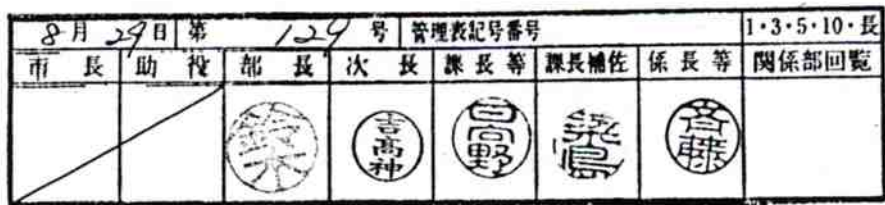 8月29日 第 129 号 管理表記号番号 1・3・5・10・長
市長 助役 部長 次長 課長等 課長補佐 係長等 関係部回覧
鈴木 吉高神 日高野 飛鳥 斉藤